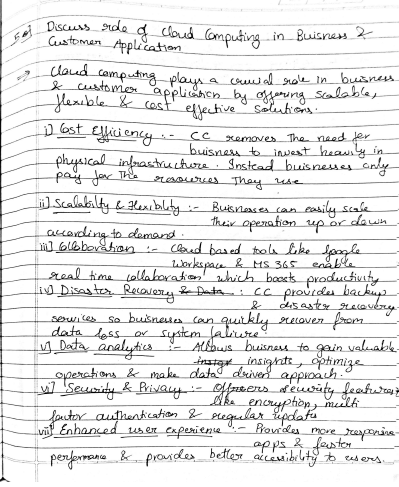 5.a] Discuss role of Cloud Computing in Buisness &
Customer Application
=> Cloud computing plays a crucial role in buisness
& customer application by offering scalable,
flexible & cost effective solutions.
i] Cost Efficiency :- CC removes the need for
buisness to invest heavily in
physical infrastructure. Instead buisnesses only
pay for the resources they use
ii] Scalability & Flexibility :- Buisnesses can easily scale
their operation up or down
according to demand.
iii] Colloboration :- Cloud based tools like Google
Workspace & MS 365 enable
real time collaboration which boosts productivity
iv] Disaster Recovery & Data : CC provides backup
& disaster recovery
services so buisnesses can quickly recover from
data loss or system failure
v] Data analytics :- Allows buisness to gain valuable
insights, optimize
operations & make data driven approach.
vi] Security & Privacy :- Offers security features
like encryption, multi
factor authentication & regular updats
vii] Enhanced user experience :- Provides more responsive
apps & faster
performance & provides better accessibility to users.